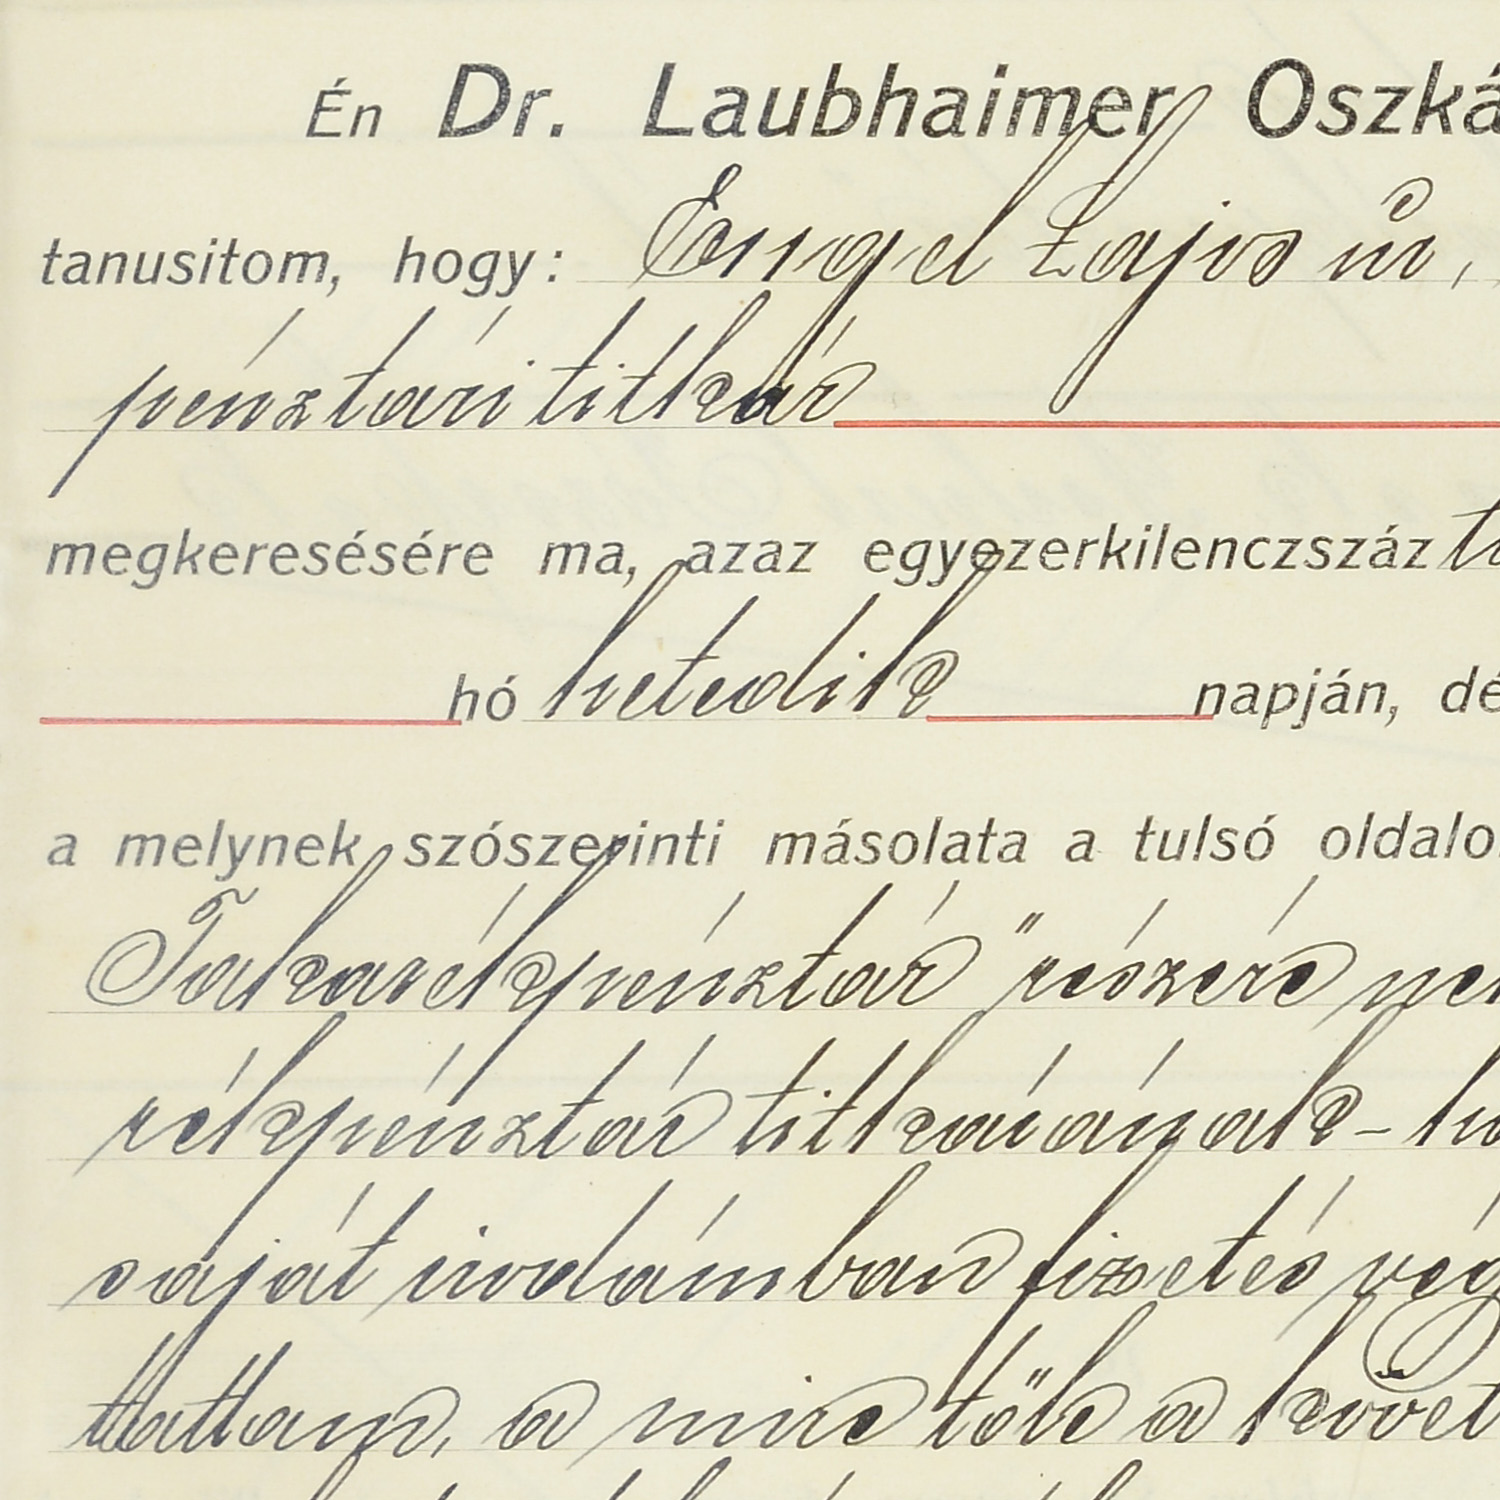 Én Dr. Laubhaimer Oszká
tanusitom, hogy: Engel Lajos úr,
pénztári titkár
megkeresésére ma, azaz egyezerkilenczszáz
hó hetedik napján, dé
a melynek szószerinti másolata a tulsó oldalo
Takarékpénztár" részére
rékpénztár titkárának -
saját irodámban fizetés vég
ttattam, a mire től e a követ